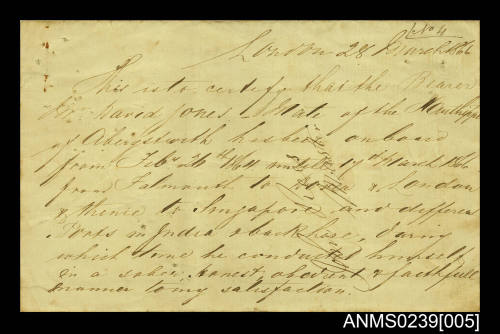 No 4
London 28 March 186
This is to certify that the Bearer
Mr David Jones Mate of the
of Aberystwith has been on board
from Feby 26th 1864 until 17th March 186
from Falmouth to & London
& thence to Singapore and differen
Ports in India & back here, during
which time he conducted himself
in a sober, honest obedient & faithfull
manner to my satisfaction.
ANMS0239[005]